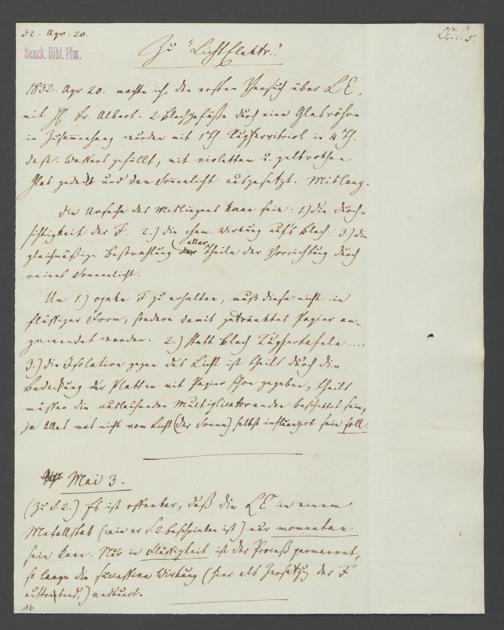 32. Apr. 20.
Senck. Bibl. Ffm.
Zu "LichtElektr."
1832. Apr. 20. machte ich den ersten Versuch über LE,
mit H. Dr. Albert. 2 Blechgefäße durch eine Glasröhre
in Zusammenhang wurden mit 1 Th. Kupfervitriol in 4 Th.
dest. Wassers gefüllt, mit violettem u. gelbrothem
Glas gedeckt und dem Sonnenlicht ausgesetzt. Mislang.
Die Ursache des Mislingens kann sein: 1.) die Durch-
sichtigkeit der F. 2.) die chem. Wirkung aufs Blech. 3.) die
gleichmäßige Bestrahlung aller Theile der Vorrichtung durch
reines Sonnenlicht.
Um 1.) opake F zu erhalten, muß diese nicht in
flüssiger Form, sondern damit getränktes Papier an-
gewendet werden. 2.) statt Blech Kupfertafeln ....
3.) die Isolation gegen das Licht ist theils durch die
Bedeckung der Platten mit Papier schon gegeben, theils
müssen die auslaufenden Multiplicatorenden beschattet sein,
ja Alles was nicht vom Licht (der Sonne) selbst influenzirt sein soll.
Mai 3.
(Zu S. 2.) Es ist offenbar, daß die LE in einem
Metallstab (wie er S. 2 beschrieben ist) nur momentan
sein kann. Nur in Flüssigkeit ist der Proceß permanent,
so lange die successive Wirkung (hier als Zersetzg der F
auftretend,) andauert.
16